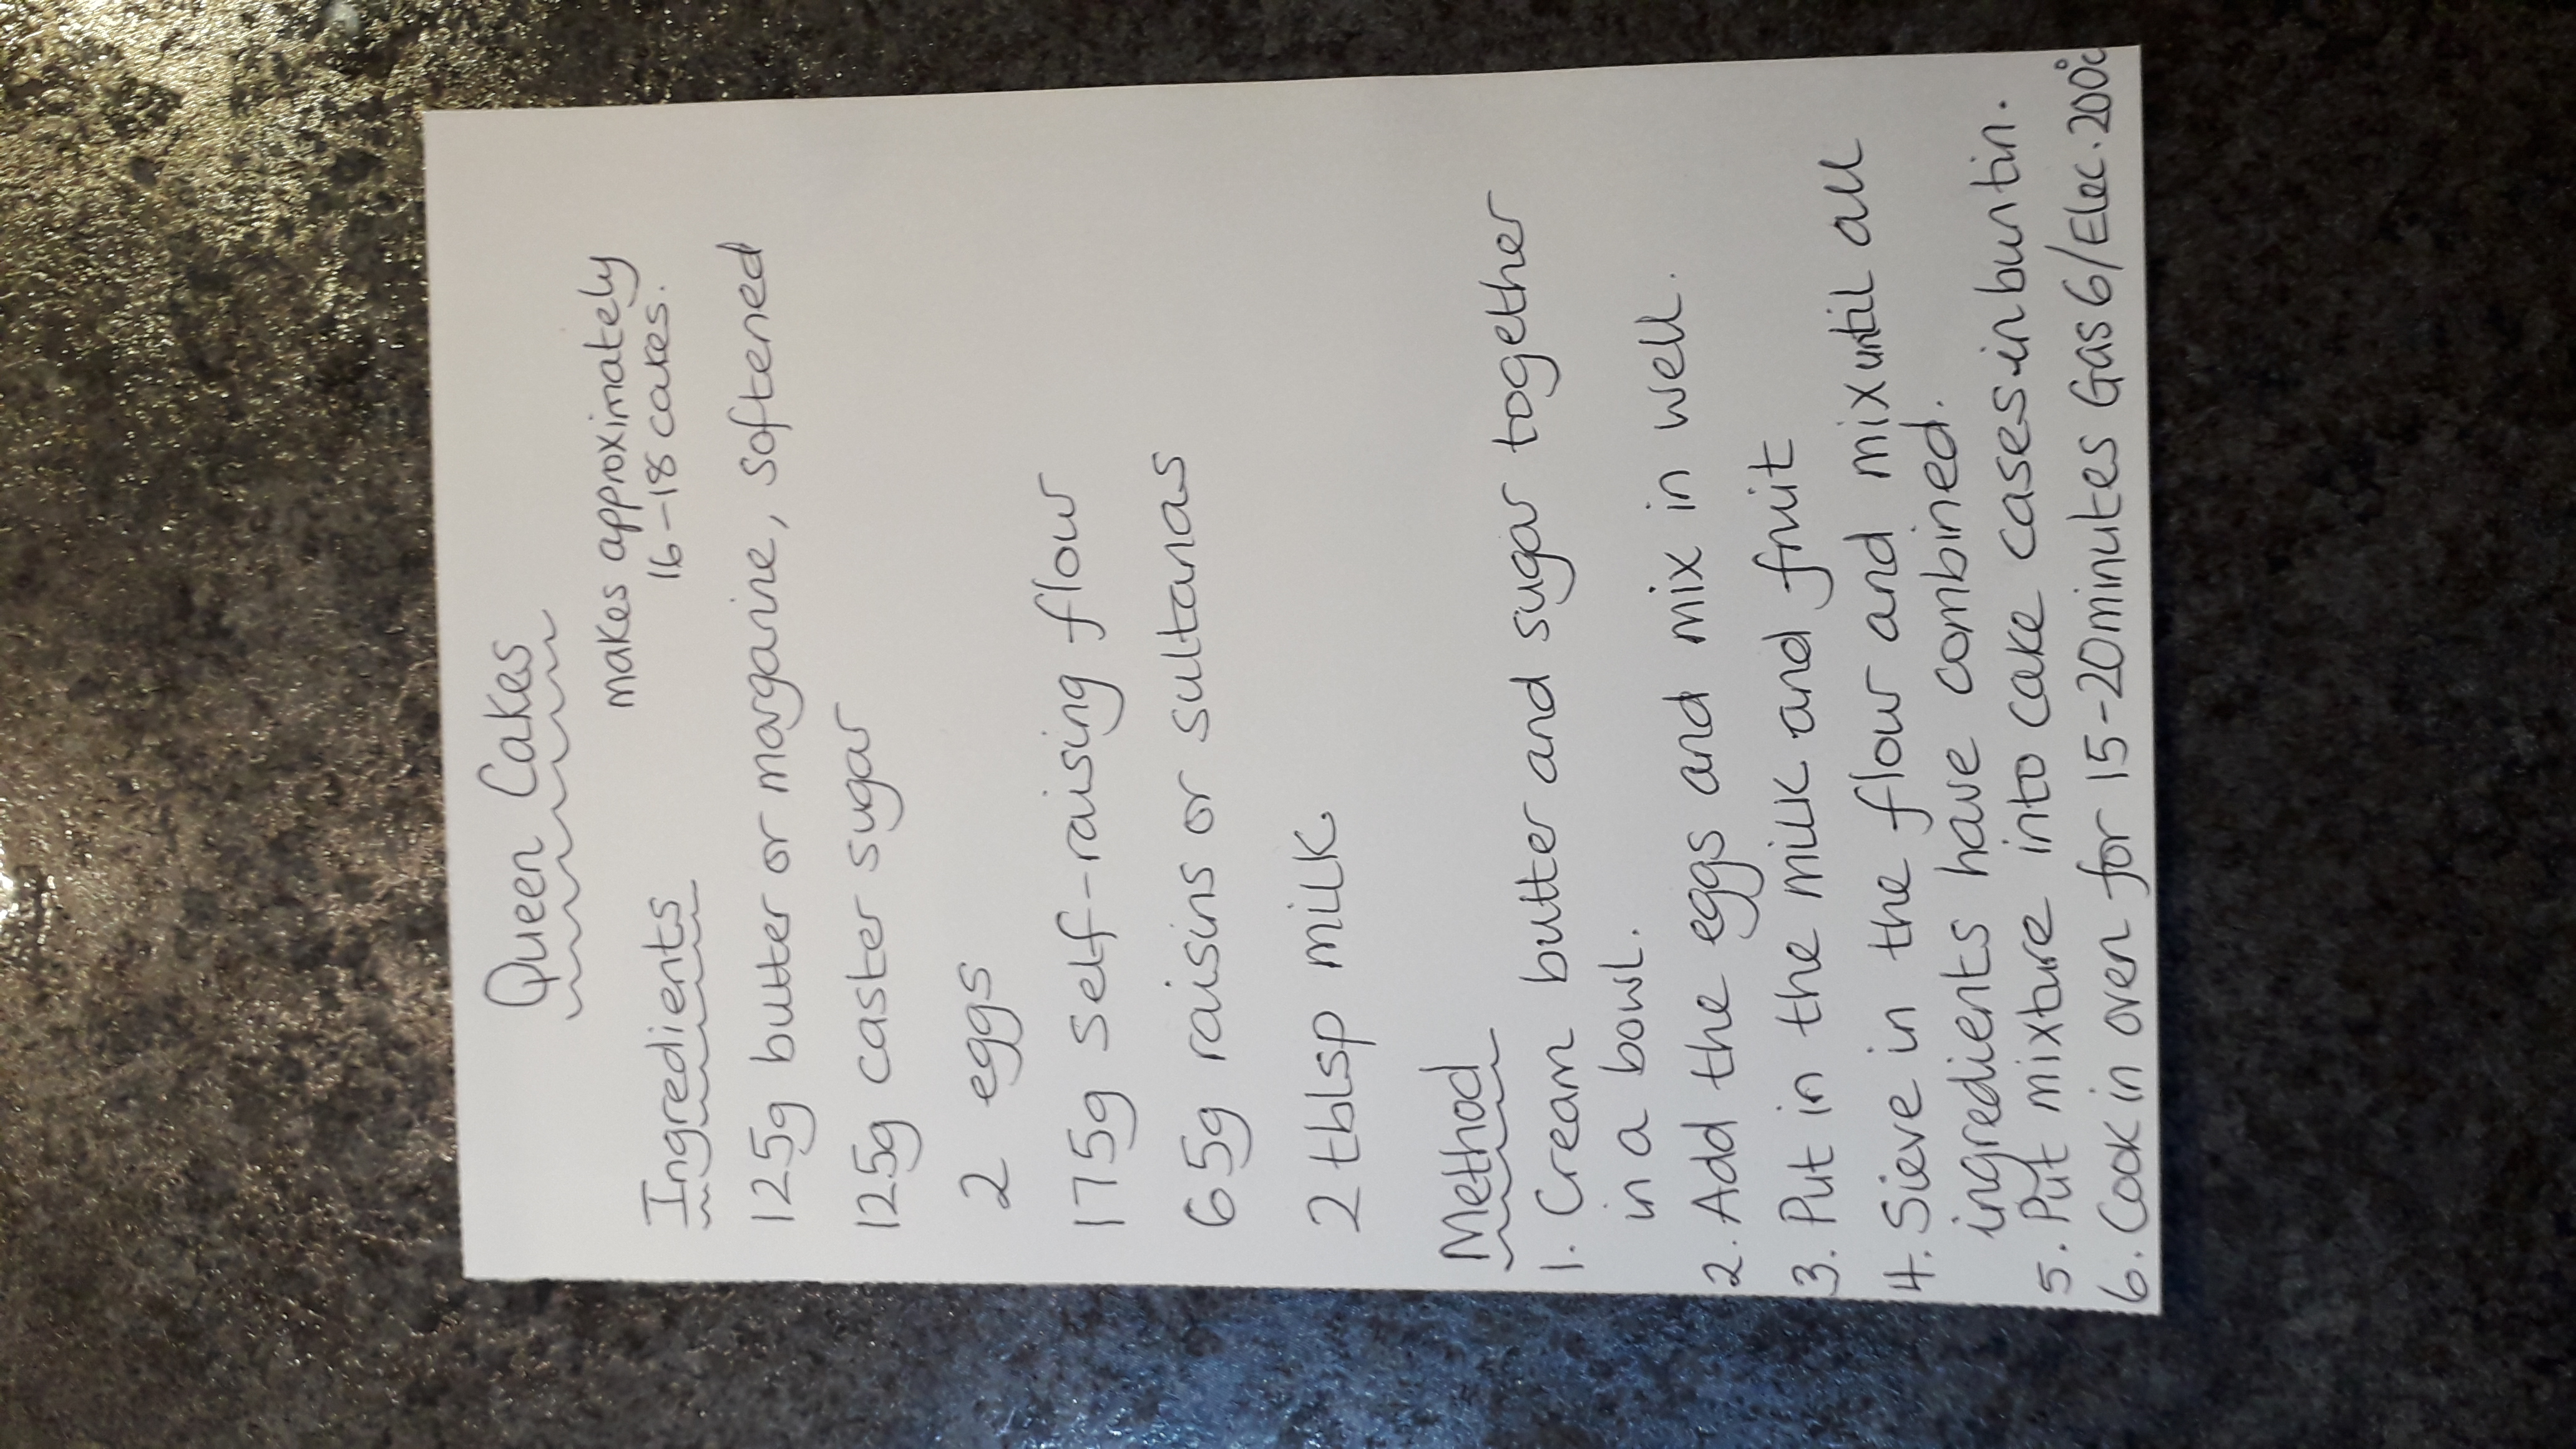 Queen Cakes
makes approximately
16-18 cakes.
Ingredients
125g butter or margarine, softened
125g caster sugar
2 eggs
175g self-raising flour
65g raisins or sultanas
2 tblsp milk
Method
1. Cream butter and sugar together
in a bowl.
2. Add the eggs and mix in well.
3. Put in the milk and fruit
4. Sieve in the flour and mix until all
ingredients have combined.
5. Put mixture into cake cases in bun tin.
6. Cook in oven for 15-20 minutes Gas 6/Elec. 200°c